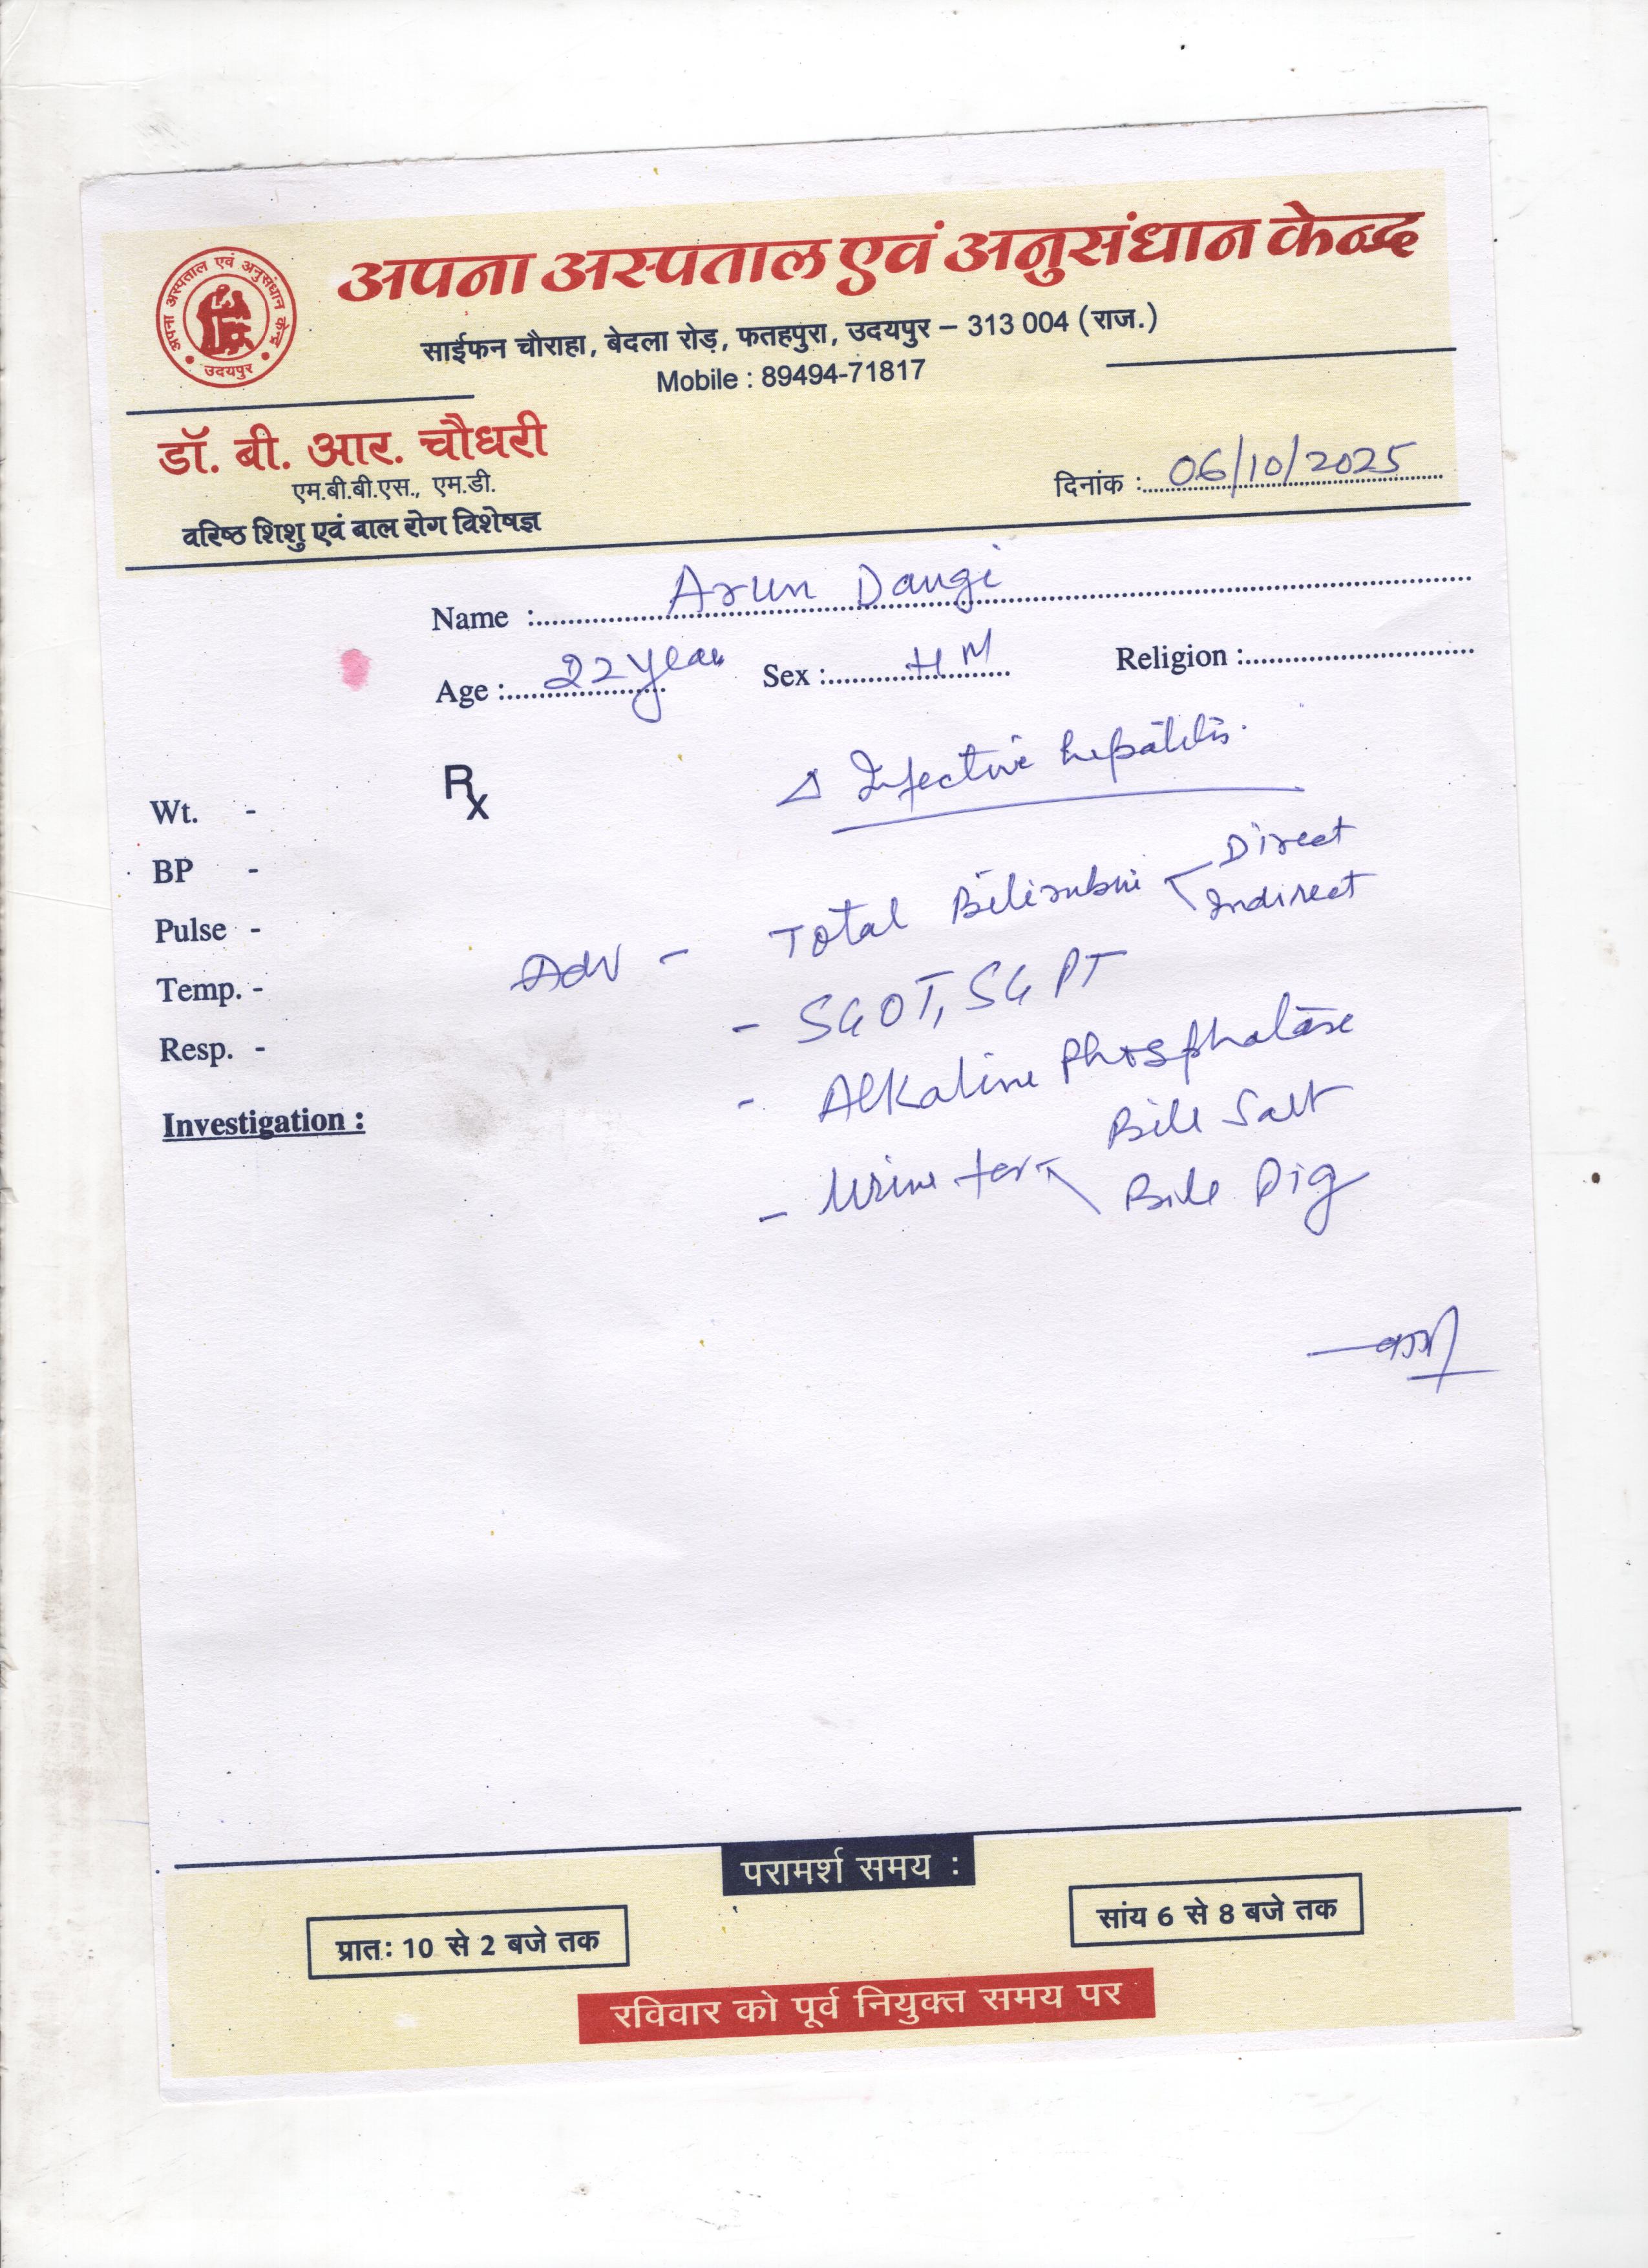 अपना अस्पताल एवं अनुसंधान केन्द्र
अपना अस्पताल एवं अनुसंधान केन्द्र
उदयपुर
साईफन चौराहा, बेदला रोड़, फतहपुरा, उदयपुर – 313 004 (राज.)
Mobile : 89494-71817
डॉ. बी. आर. चौधरी
एम.बी.बी.एस., एम.डी.
वरिष्ठ शिशु एवं बाल रोग विशेषज्ञ
दिनांक : 06/10/2025
Name : Arun Dangi
Age : 22 year Sex : H M Religion :
Rx Δ Infective hepatitis.
Wt. -
BP -
Pulse -
Temp. -
Resp. -
Investigation :
Adv - Total Bilirubin Direct
Indirect
- SGOT, SGPT
- Alkaline Phosphatase
- Urine for Bile Salt
Bile Pig
परामर्श समय :
प्रातः 10 से 2 बजे तक
सांय 6 से 8 बजे तक
रविवार को पूर्व नियुक्त समय पर